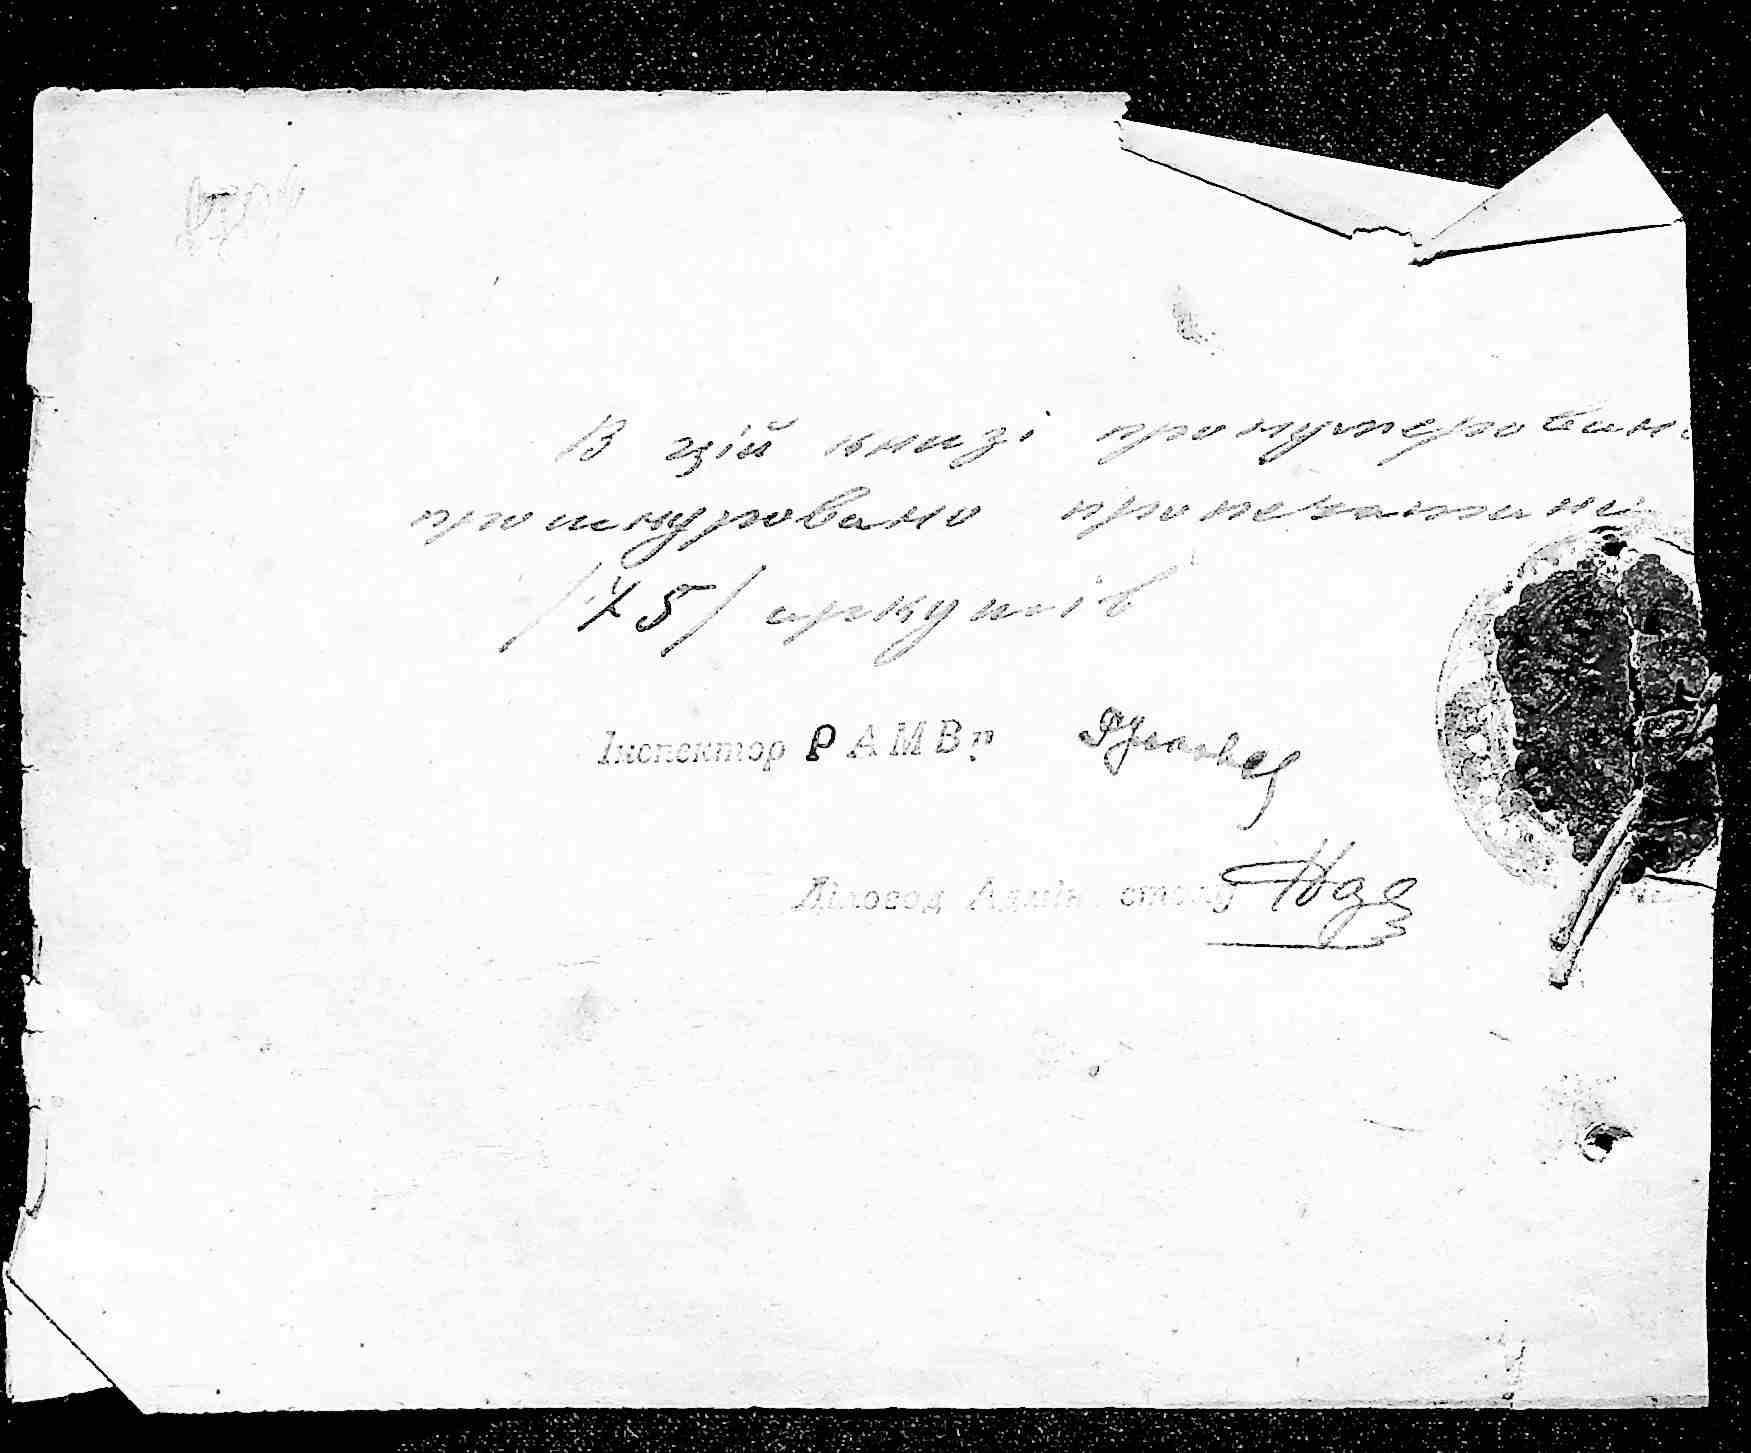 В цій книзі пронумеровано
прошнуровано пропечатано
/75/ аркушів
Інспектор Р А М В
Діловод Адмін. столу